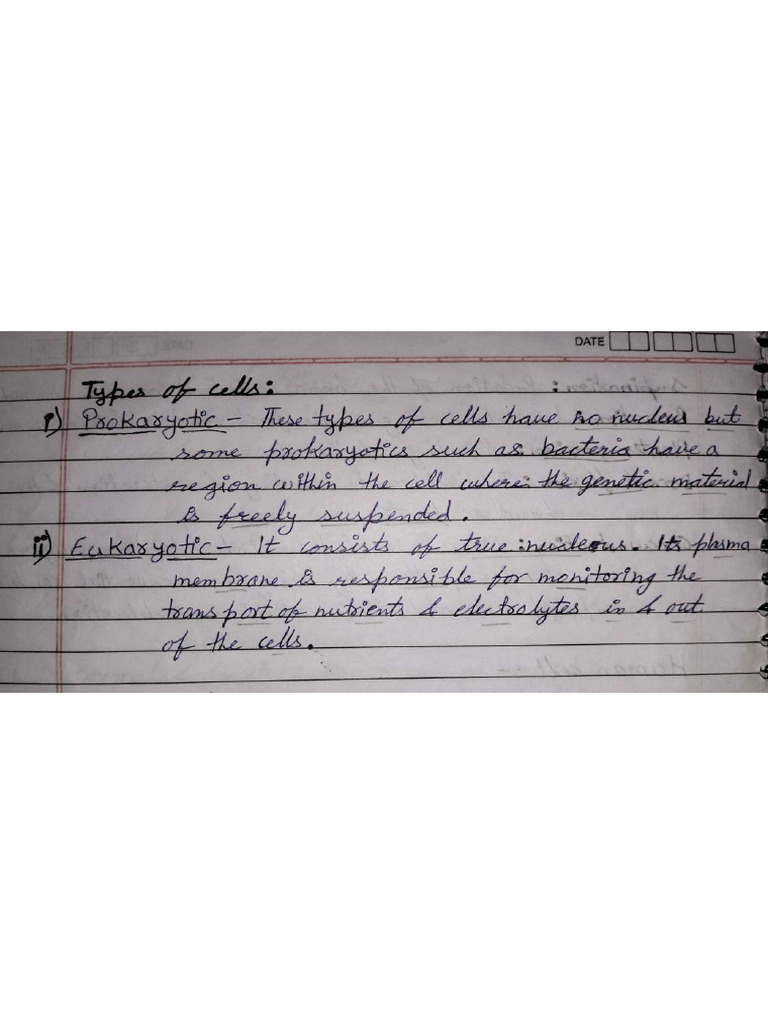 DATE
Types of cells:
i) Prokaryotic - These types of cells have no nucleus but
some prokaryotics such as bacteria have a
region within the cell where the genetic material
is freely suspended.
ii) Eukaryotic - It consists of true nucleous. Its plasma
membrane is responsible for monitoring the
transport of nutrients & electrolytes in & out
of the cells.